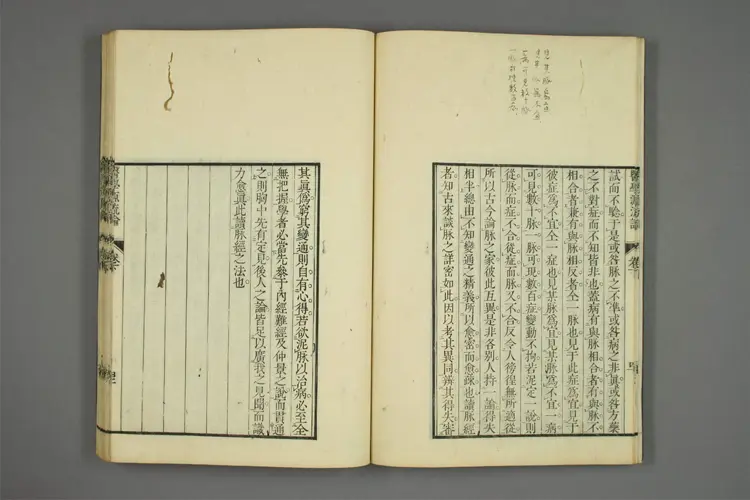 醫學源流論
試而不驗于是或咎脉之不準或咎病之非眞或咎方藥
之不對症而不知皆非也蓋病有與脉相合者有與脉不
相合者兼有與脉相反者仝一脉也見于此症爲宜見于
彼症爲不宜仝一症也見某脉爲宜見某脉爲不宜一病
可見數十脉一脉可現數百症變動不拘若泥定一說則
從脉而症不合從症而脉又不合反令人徬徨無所適從
所以古今論脉之家彼此互異是非各別人持一論得失
相半總由不知變通之精義所以愈密而愈疎也讀脉經
者知古來談脉之詳密如此因以考其異同辨其得失審
其眞僞窮其變通則自有心得若欲泥脉以治病必至全
無把握學者必當先叅于內經難經及仲景之說而貫通
之則胸中先有定見後人之論皆足以廣我之見聞而識
力愈眞此讀脉經之法也